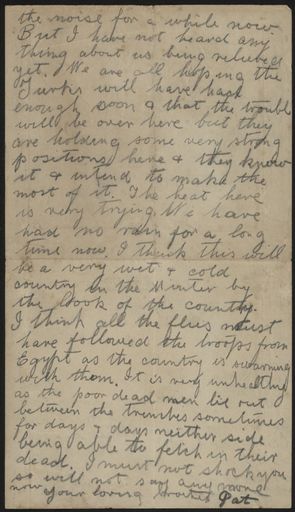 the noise for a while now.
But I have not heard any
thing about us being relieved
yet. We are all hoping the
Turks will have had
enough soon & that the trouble
will be over here but they
are holding some very strong
positions here & they know
it & intend to make the
most of it. The heat here
is very trying. We have
had no rain for a long
time now. I think this will
be a very wet & cold
country in the Winter by
the look of the country.
I think all the flies must
have followed the troops from
Egypt as the country is swarming
with them. It is very unhealthy
as the poor dead men lie out
between the trenches sometimes
for days & days neither side
being able to fetch in their
dead. I must not shock you
so will not say any more
now your loving brother Pat